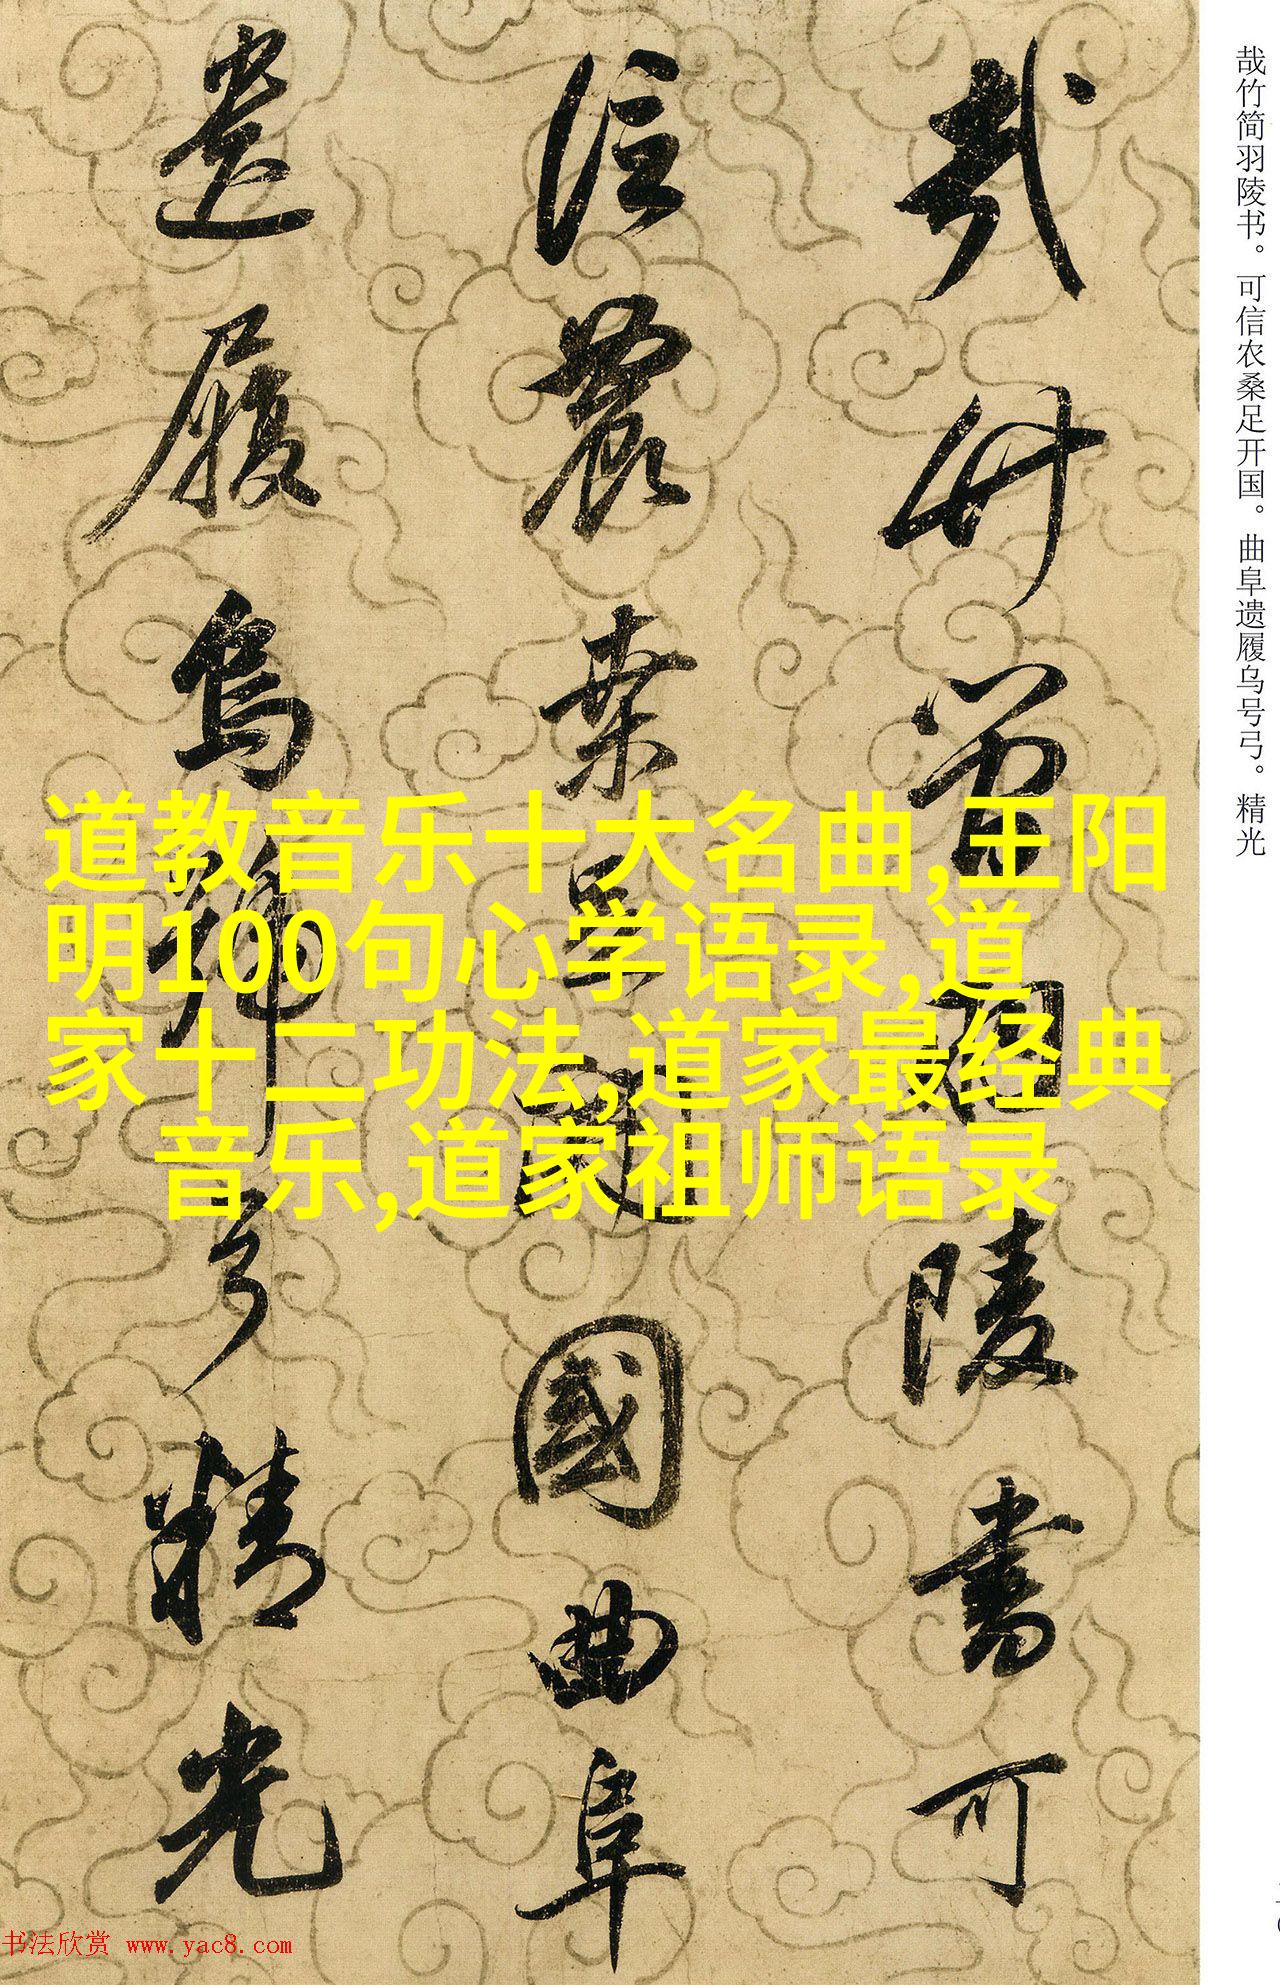 哉竹简羽陵书。可信农桑足开国。曲阜遗履乌号弓。精光
哉竹簡羽陵書可
信農桒足開國曲阜
遺履烏號弓精光
道教音乐十大名曲,王阳
明100句心学语录,道
家十二功法,道家最经典
音乐,道家祖师语录
书法欣赏 www.yac8.com